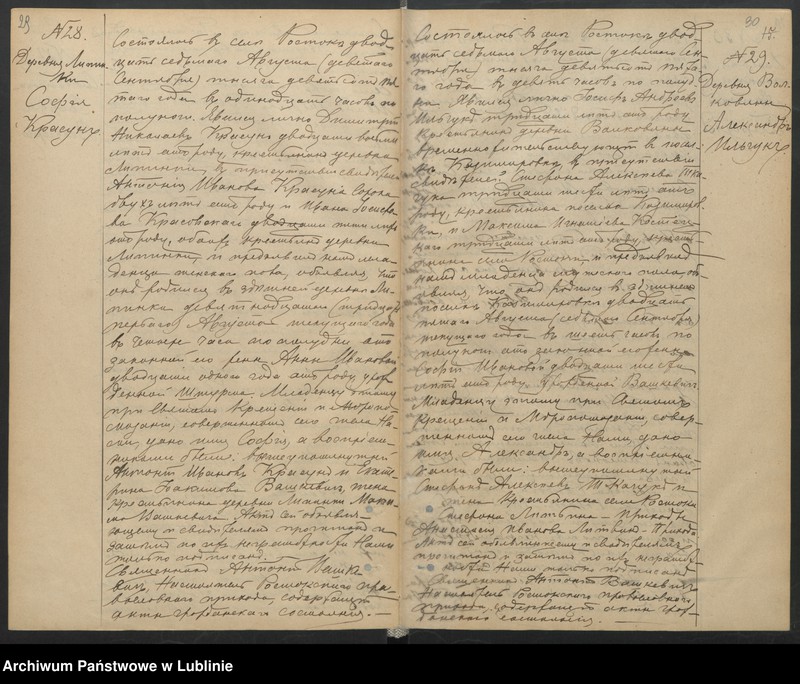 29
№28.
Деревня Липин-
ки
Софія
Красунъ
Состоялось въ селѣ Ростокѣ двад-
цать седьмаго Августа (девятаго
Сентября) тысяча девятьсотъ пя-
таго года въ одинадцать часовъ по
полуночи. Явился лично Димитрій
Николаевъ Красунъ двадцати восьми
лѣтъ отъ роду, крестьянинъ деревни
Липинки, въ присутствіи свидѣтелей
Антонія Иванова Красуна сорока
двухъ лѣтъ отъ роду и Ивана
Красовскаго двадцати пяти лѣтъ
отъ роду, обоихъ крестьянъ деревни
Липинки и предъявилъ намъ мла-
денца женскаго пола, объявляя, что
онъ родился въ здѣшней деревнѣ Ли-
пинка девятнадцатаго (тридцать
перваго) Августа текущаго года
въ четыре часа по полудни отъ
законной его жены Анны Ивановой
двадцати одного года отъ роду урож-
денной Младенцу этому
при Святомъ Крещеніи и Мѵропо-
мазаніи, совершенномъ сего числа На-
ми, дано имя Софія, а воспріем-
никами были: вышеупомянутый
Антонъ Ивановъ Красунъ и Екате-
рина Вашкевичъ, жена
крестьянина деревни Липинки Макси-
ма Вашкевича. Актъ сей объявля-
ющему и свидѣтелямъ прочитанъ и
затѣмъ по ихъ неграмотности Нами
только подписанъ.
Священникъ Антонъ Вашке-
вичъ, Настоятель Ростокскаго пра-
вославнаго прихода, содержащій
акты гражданскаго состоянія.
30
17.
№29.
Деревня Вол-
ковяны
Александръ
Ильчукъ
Состоялось въ селѣ Ростокѣ двад-
цать седьмаго Августа (девятаго Сен-
тября) тысяча девятьсотъ пята-
го года въ девять часовъ по полу-
дни. Явился лично Іосифъ Андреевъ
Ильчукъ тридцати лѣтъ отъ роду
крестьянинъ деревни Волковяны
временножительствующій въ посел-
кѣ Казимировка въ присутствіи
свидѣтелей: Стефана Алексѣева Тка-
чука тридцати лѣтъ отъ
роду, крестьянина поселка Казимиров-
ка, и Максима Игнатьева
тридцати лѣтъ отъ роду, кресть-
янина села Ростоки и предъявилъ
намъ младенца мужескаго пола, об-
являя, что онъ родился въ здѣшнемъ
поселкѣ Казимировка двадцать
пятаго Августа (седьмаго Сентября)
текущаго года въ шесть часовъ по
полуночи отъ законной его жены
Софіи Ивановой двадцати шести
лѣтъ отъ роду, урожденной Вашкевичъ.
Младенцу этому при Святомъ
Крещеніи и Мѵропомазаніи, совер-
шенномъ сего числа Нами, дано
имя Александръ, а воспріемни-
ками были: вышеупомянутый
Стефанъ Алексѣевъ Ткачукъ и
жена крестьянина села Ростоки
Стефана Литвина
Анастасія Иванова Литвинъ.
Актъ сей объявляющему и свидѣтелямъ
прочитанъ и затѣмъ по ихъ неграмот-
ности Нами только подписанъ.
Священникъ Антонъ Вашкевичъ
Настоятель Ростокскаго православнаго
прихода, содержащій акты граж-
данскаго состоянія.
Archiwum Państwowe w Lublinie